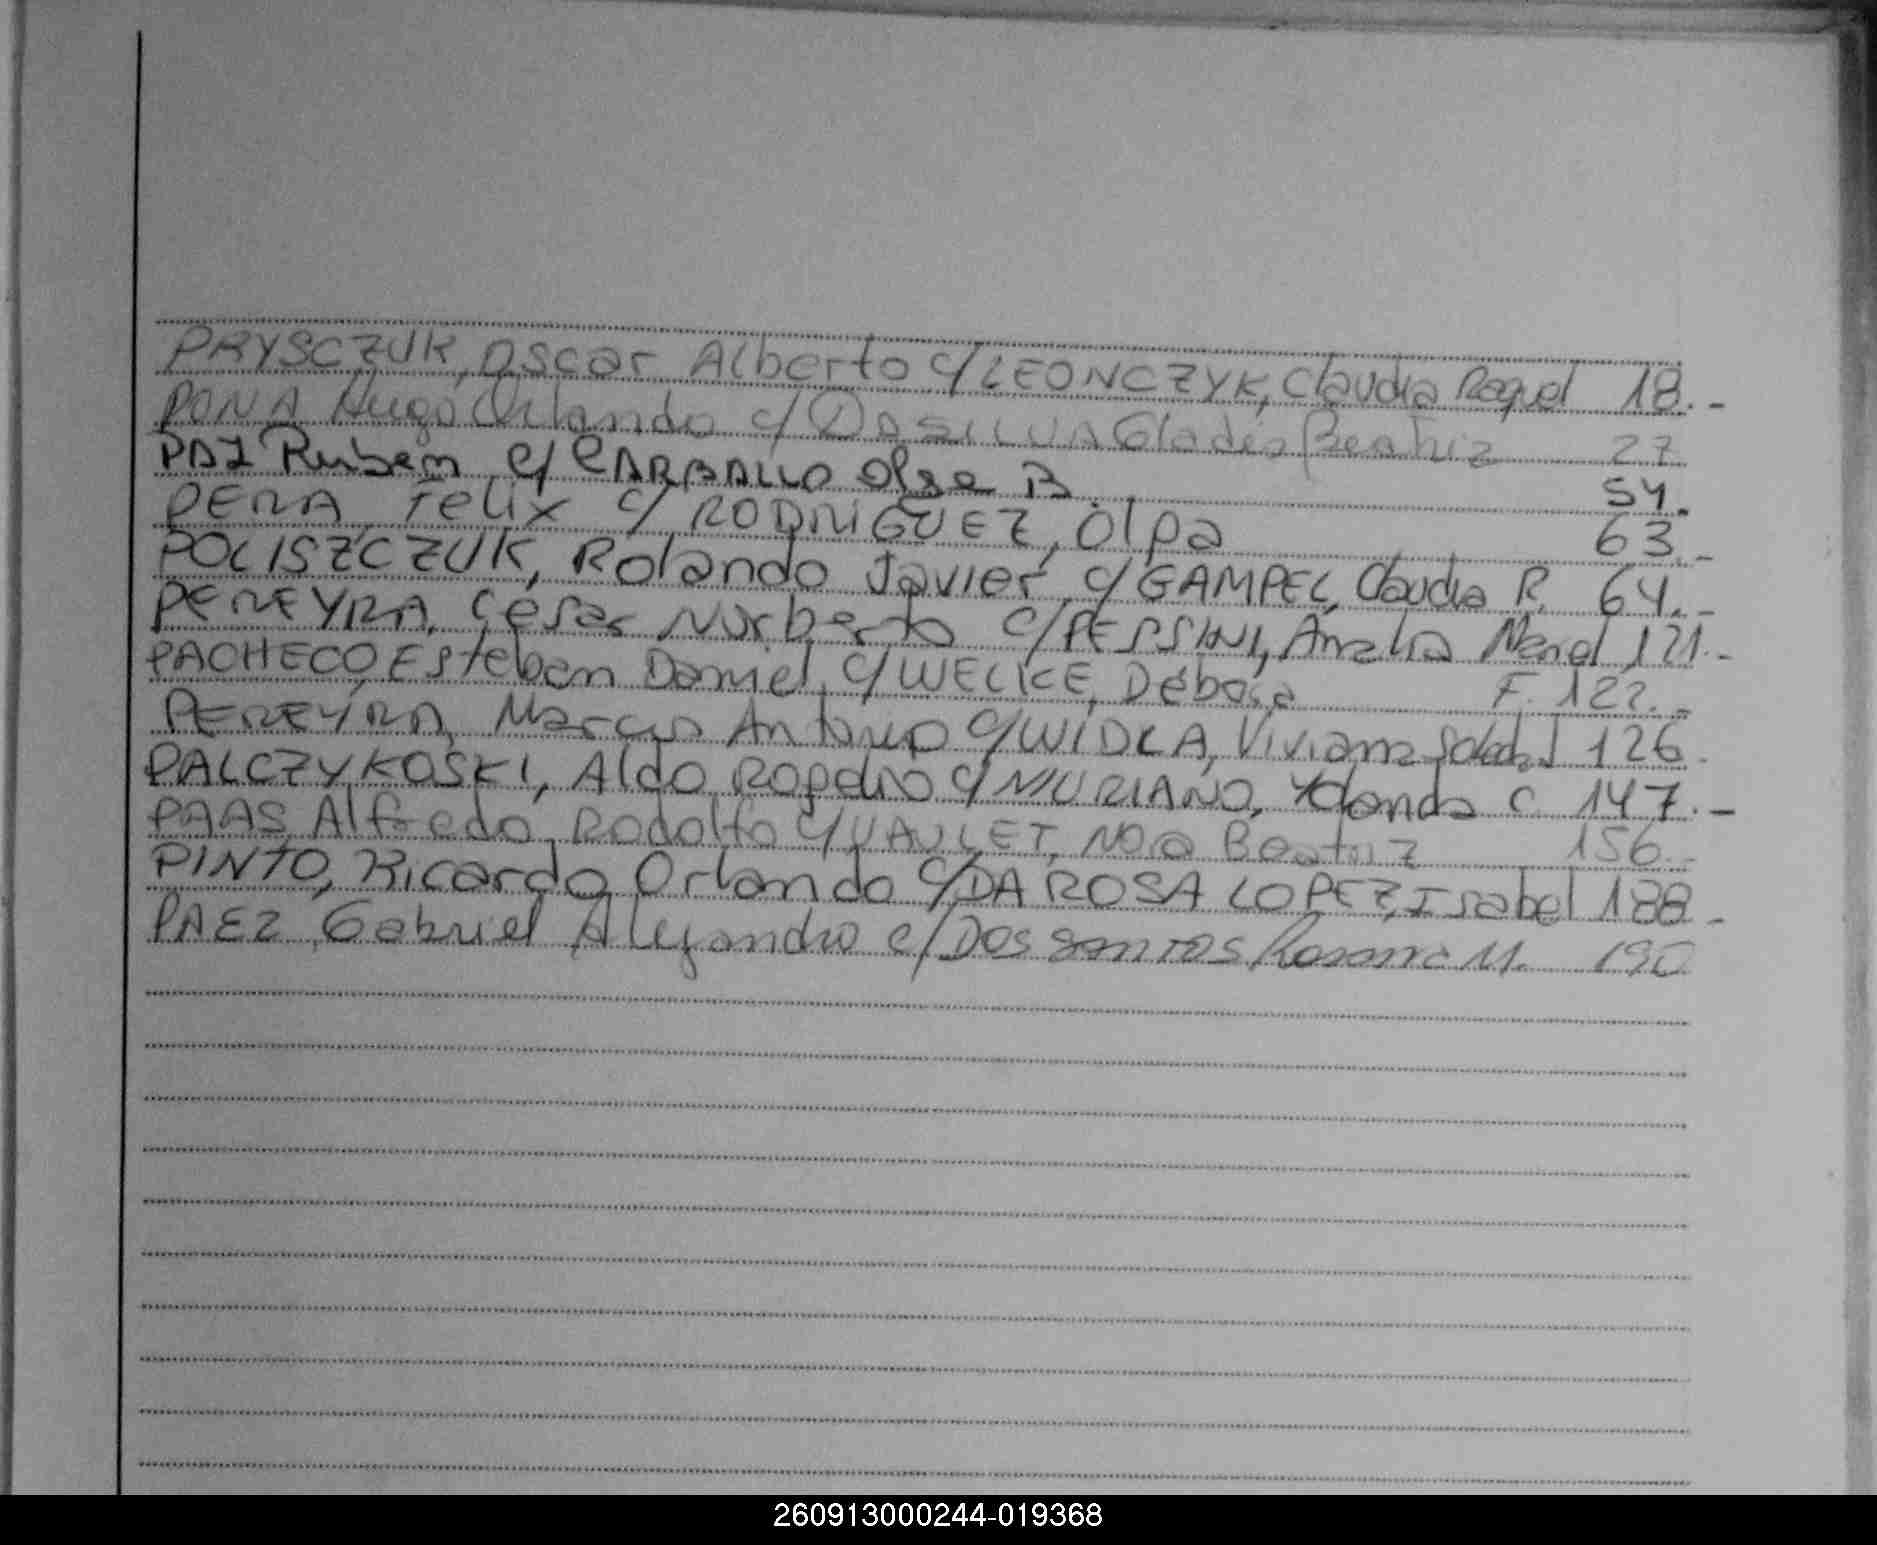 PRYSCZUK, Oscar Alberto c/LEONCZYK, Claudia Raquel 18.-
PONA Hugo Orlando c/ DA SILVA Gladis Beatriz 27
PAZ Ruben c/ CARBALLO Olga B. 54.
PERA, Felix c/ RODRIGUEZ, Olga 63.-
POLISZCZUK, Rolando Javier, c/GAMPEL, Claudia R. 64.-
PEREYRA, Cesar Norberto c/PERSINI, Analia 121.-
PACHECO, Esteban Daniel, c/WELKE, Débora F. 122.-
PEREYRA, Marcos Antonio c/WIDLA, Viviana Soledad 126.
PALCZYKOSKI, Aldo Rogelio c/MURIANO, Yolanda C. 147.-
PAAS, Alfredo Rodolfo c/VAULET, Nora Beatriz 156.-
PINTO, Ricardo Orlando c/DA ROSA LOPEZ, Isabel 188.-
PAEZ, Gabriel Alejandro c/Dos Santos M. 190
260913000244-019368